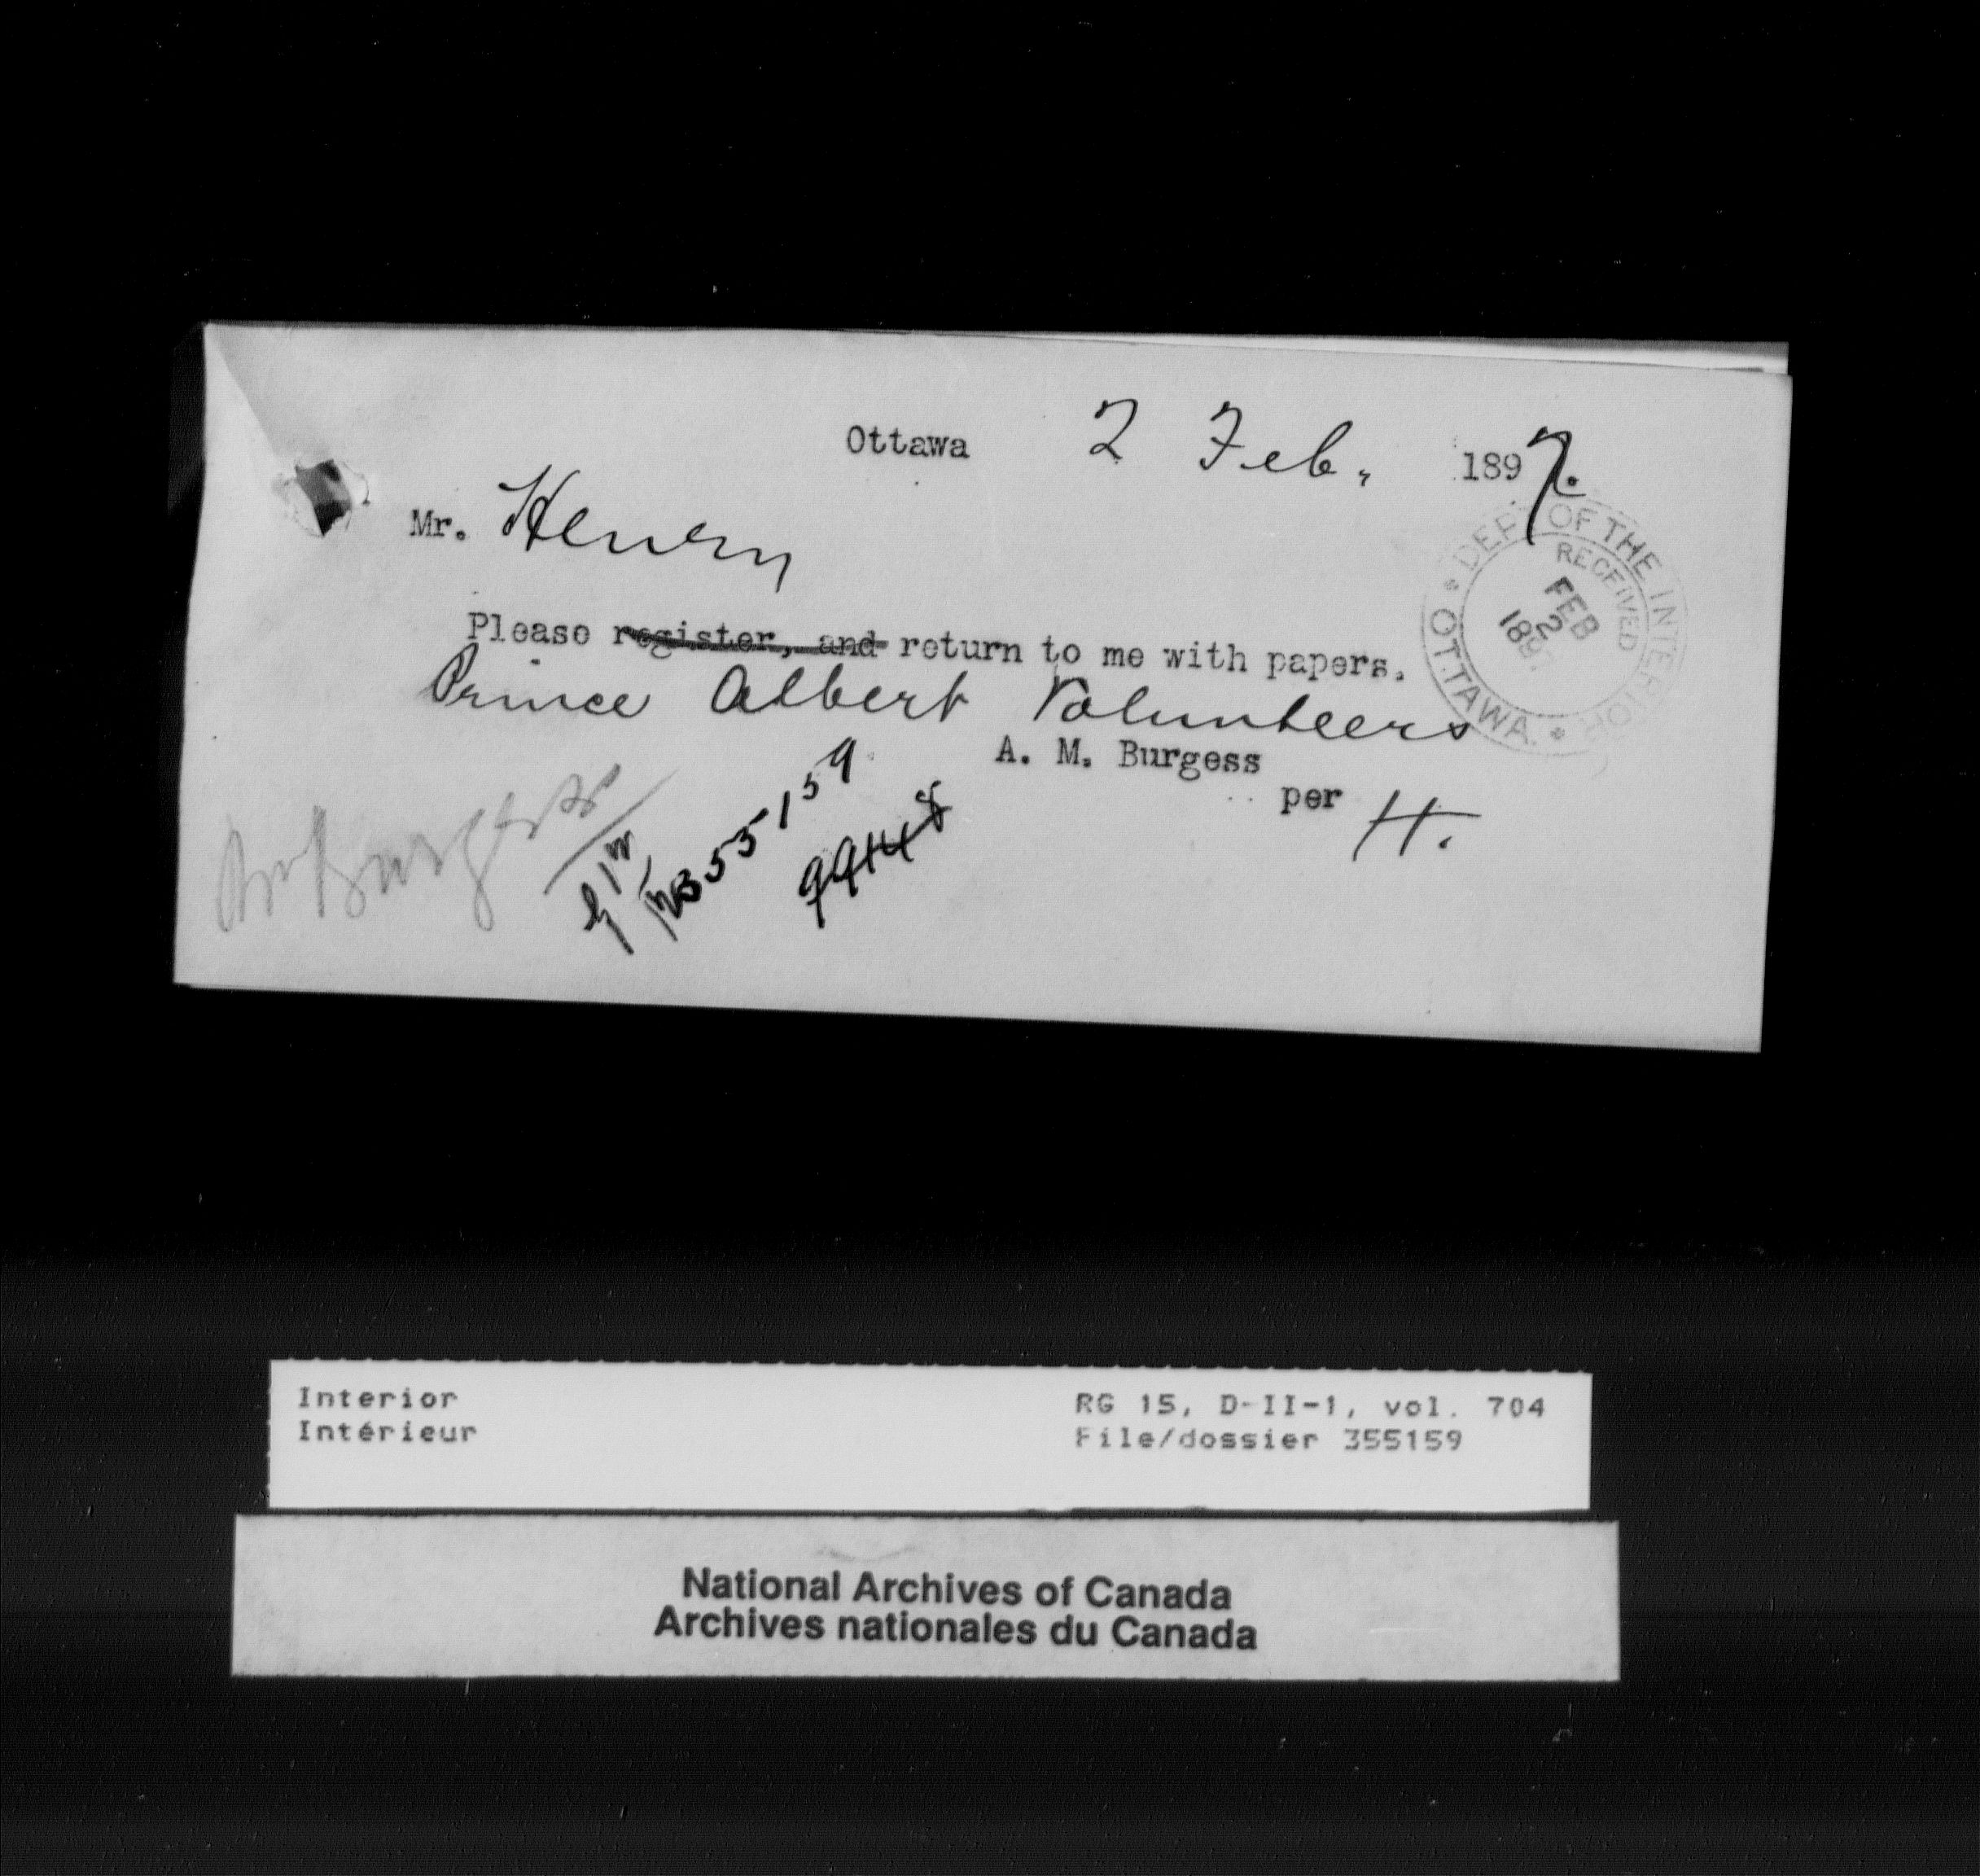 Ottawa 2 Feb. 1897.
Mr. Henry
Please register, and return to me with papers.
Prince Albert Volunteers
A. M. Burgess
per H.
Mr Burgess
355159
99148
DEPT OF THE INTERIOR * OTTAWA. *
RECEIVED
FEB
2
1897
Interior
Intérieur
RG 15, D-II-1, vol. 704
File/dossier 355159
National Archives of Canada
Archives nationales du Canada